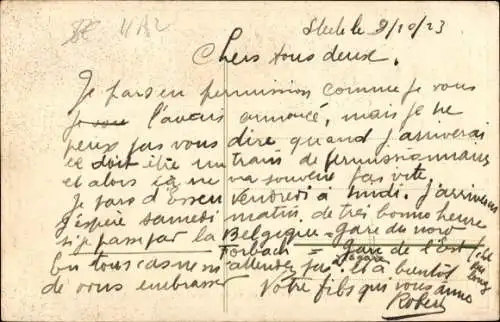 Steele le 8/10/23
Chers tous deux.
Je pars en permission comme je vous
l'avais annoncé, mais je ne
peux pas vous dire quand j'arriverai
ce doit être un train de permissionnaires
et alors ça ne va souvent pas vite.
Je pars d'Essen Vendredi à midi. J'arriverai
j'espère samedi matin. de très bonne heure
si je passe par la Belgique = gare du nord
Forbach = gare de l'Est
En tous cas ne m'attendez pas à la gare. Et à bientôt
de vous embrasser
Votre fils qui vous aime
Robert